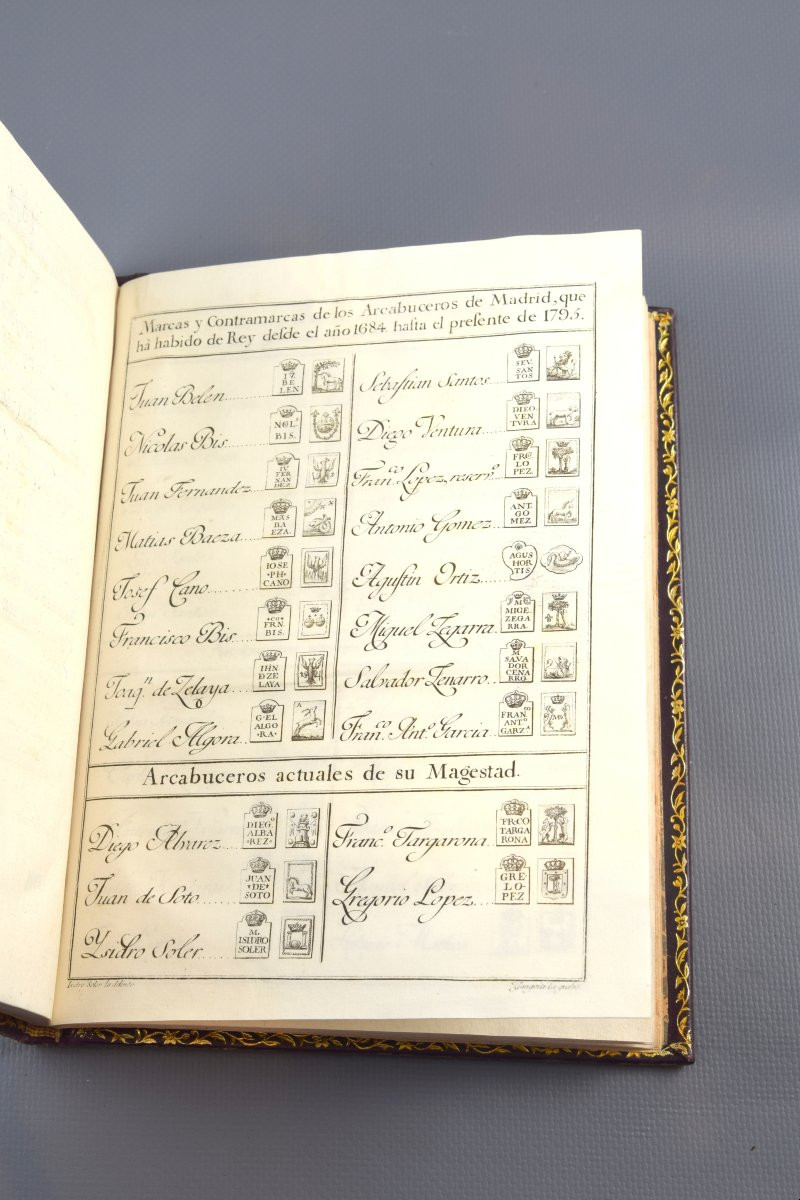 Marcas y Contramarcas de los Arcabuceros de Madrid, que
há habido de Rey desde el año 1684. hasta el presente de 1795.
Juan Belen
BE
LEN
Nicolas Bis
BIS.
Juan Fernandez
IV.
FER
NAN
DEZ
Matias Baeza
BA
EZA.
Josef Cano
IOSE
PH
CANO
Francisco Bis
FRN.
BIS.
Joaqn. de Zelaya
IHN
DZE
LAYA
Gabriel Algora
G·EL
ALGO
·RA·
Sebastian Santos
SEV.
SAN
TOS
Diego Ventura
DIEO
VEN
TVRA
Franco. Lopez, reservo.
LO
PEZ
Antonio Gomez
ANT.
GO
MEZ
Agustin Ortiz
AGUS
HOR
TIS
Miguel Zegarra
MIGE.
ZEGA
RRA.
Salvador Zenarro
M
SAVA
DOR
CENA
RRO.
Franco. Anto. Garcia
FRAN.
ANTo
GARZa
Arcabuceros actuales de su Magestad.
Diego Alvarez
DIEGo
ALBA
·REZ·
Juan de Soto
JUAN
·DE·
SOTO
Ysidro Soler
M.
ISIDRO
SOLER
Franco. Targarona
FRCO
TARGA
RONA
Gregorio Lopez
GRE
LO·
PEZ
Isidro Soler lo